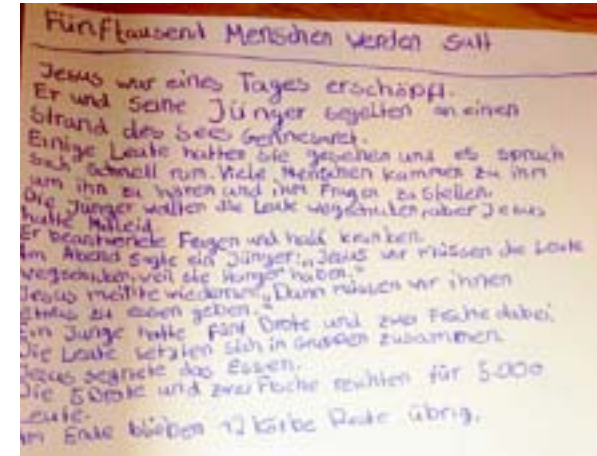 Fünftausend Menschen werden satt
Jesus war eines Tages erschöpft.
Er und seine Jünger segelten an einen
Strand des Sees Gennesaret.
Einige Leute hatten sie gesehen und es sprach
sich schnell rum. Viele Menschen kammen zu ihm
um ihn zu hören und ihm Fragen zu stellen.
Die Jünger wollten die Leute wegschicken, aber Jesus
hatte Mitleid.
Er beantwortete Fragen und half kranken.
Am Abend sagte ein Jünger: „Jesus wir müssen die Leute
wegschicken, weil sie Hunger haben."
Jesus meinte wiederum: „Dann müssen wir ihnen
etwas zu essen geben."
Ein Junge hatte fünf Brote und zwei Fische dabei.
Die Leute setzten sich in Gruppen zusammen.
Jesus segnete das Essen.
Die 5 Brote und zwei Fische reichten für 5.000
Leute.
Am Ende blieben 12 körbe Reste übrig.